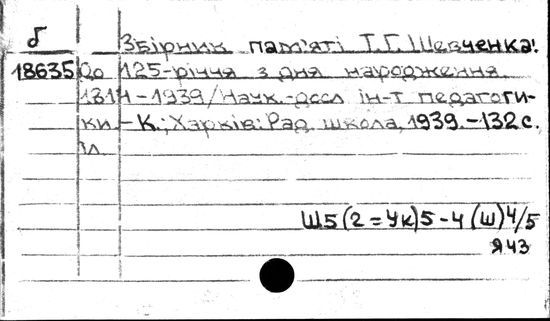 б
Збірник пам'яті Т.Г. Шевченка:
18635 До 125-річчя з дня народження
1814-1939/Наук.-досл ін-т педагоги-
ки.-К.; Харків: Рад. школа, 1939.-132 с.
іл.
Ш5(2=Ук)5-4(Ш)4/5
Я43